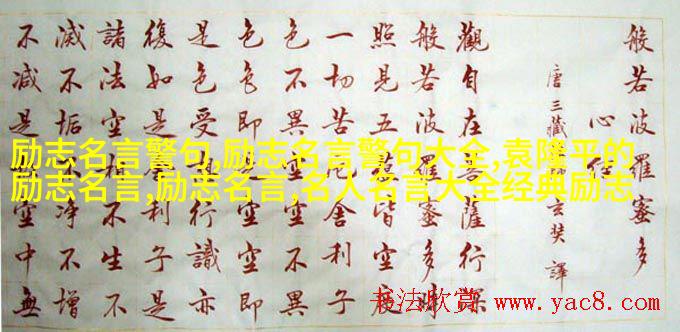 般若波羅蜜多
心经
唐三藏玄奘譯
觀自在菩薩行深
般若波羅蜜多時
照見五蘊皆空度
一切苦厄舍利子
色不異空空不異
色色即是空空即
是色受想行識亦
復如是舍利子是
諸法空相不生不
滅不垢不淨不增
不減是故空中無
励志名言警句,励志名言警句大全,袁隆平的
励志名言,励志名言,名人名言大全经典励志
书法欣赏 www.yac8.com